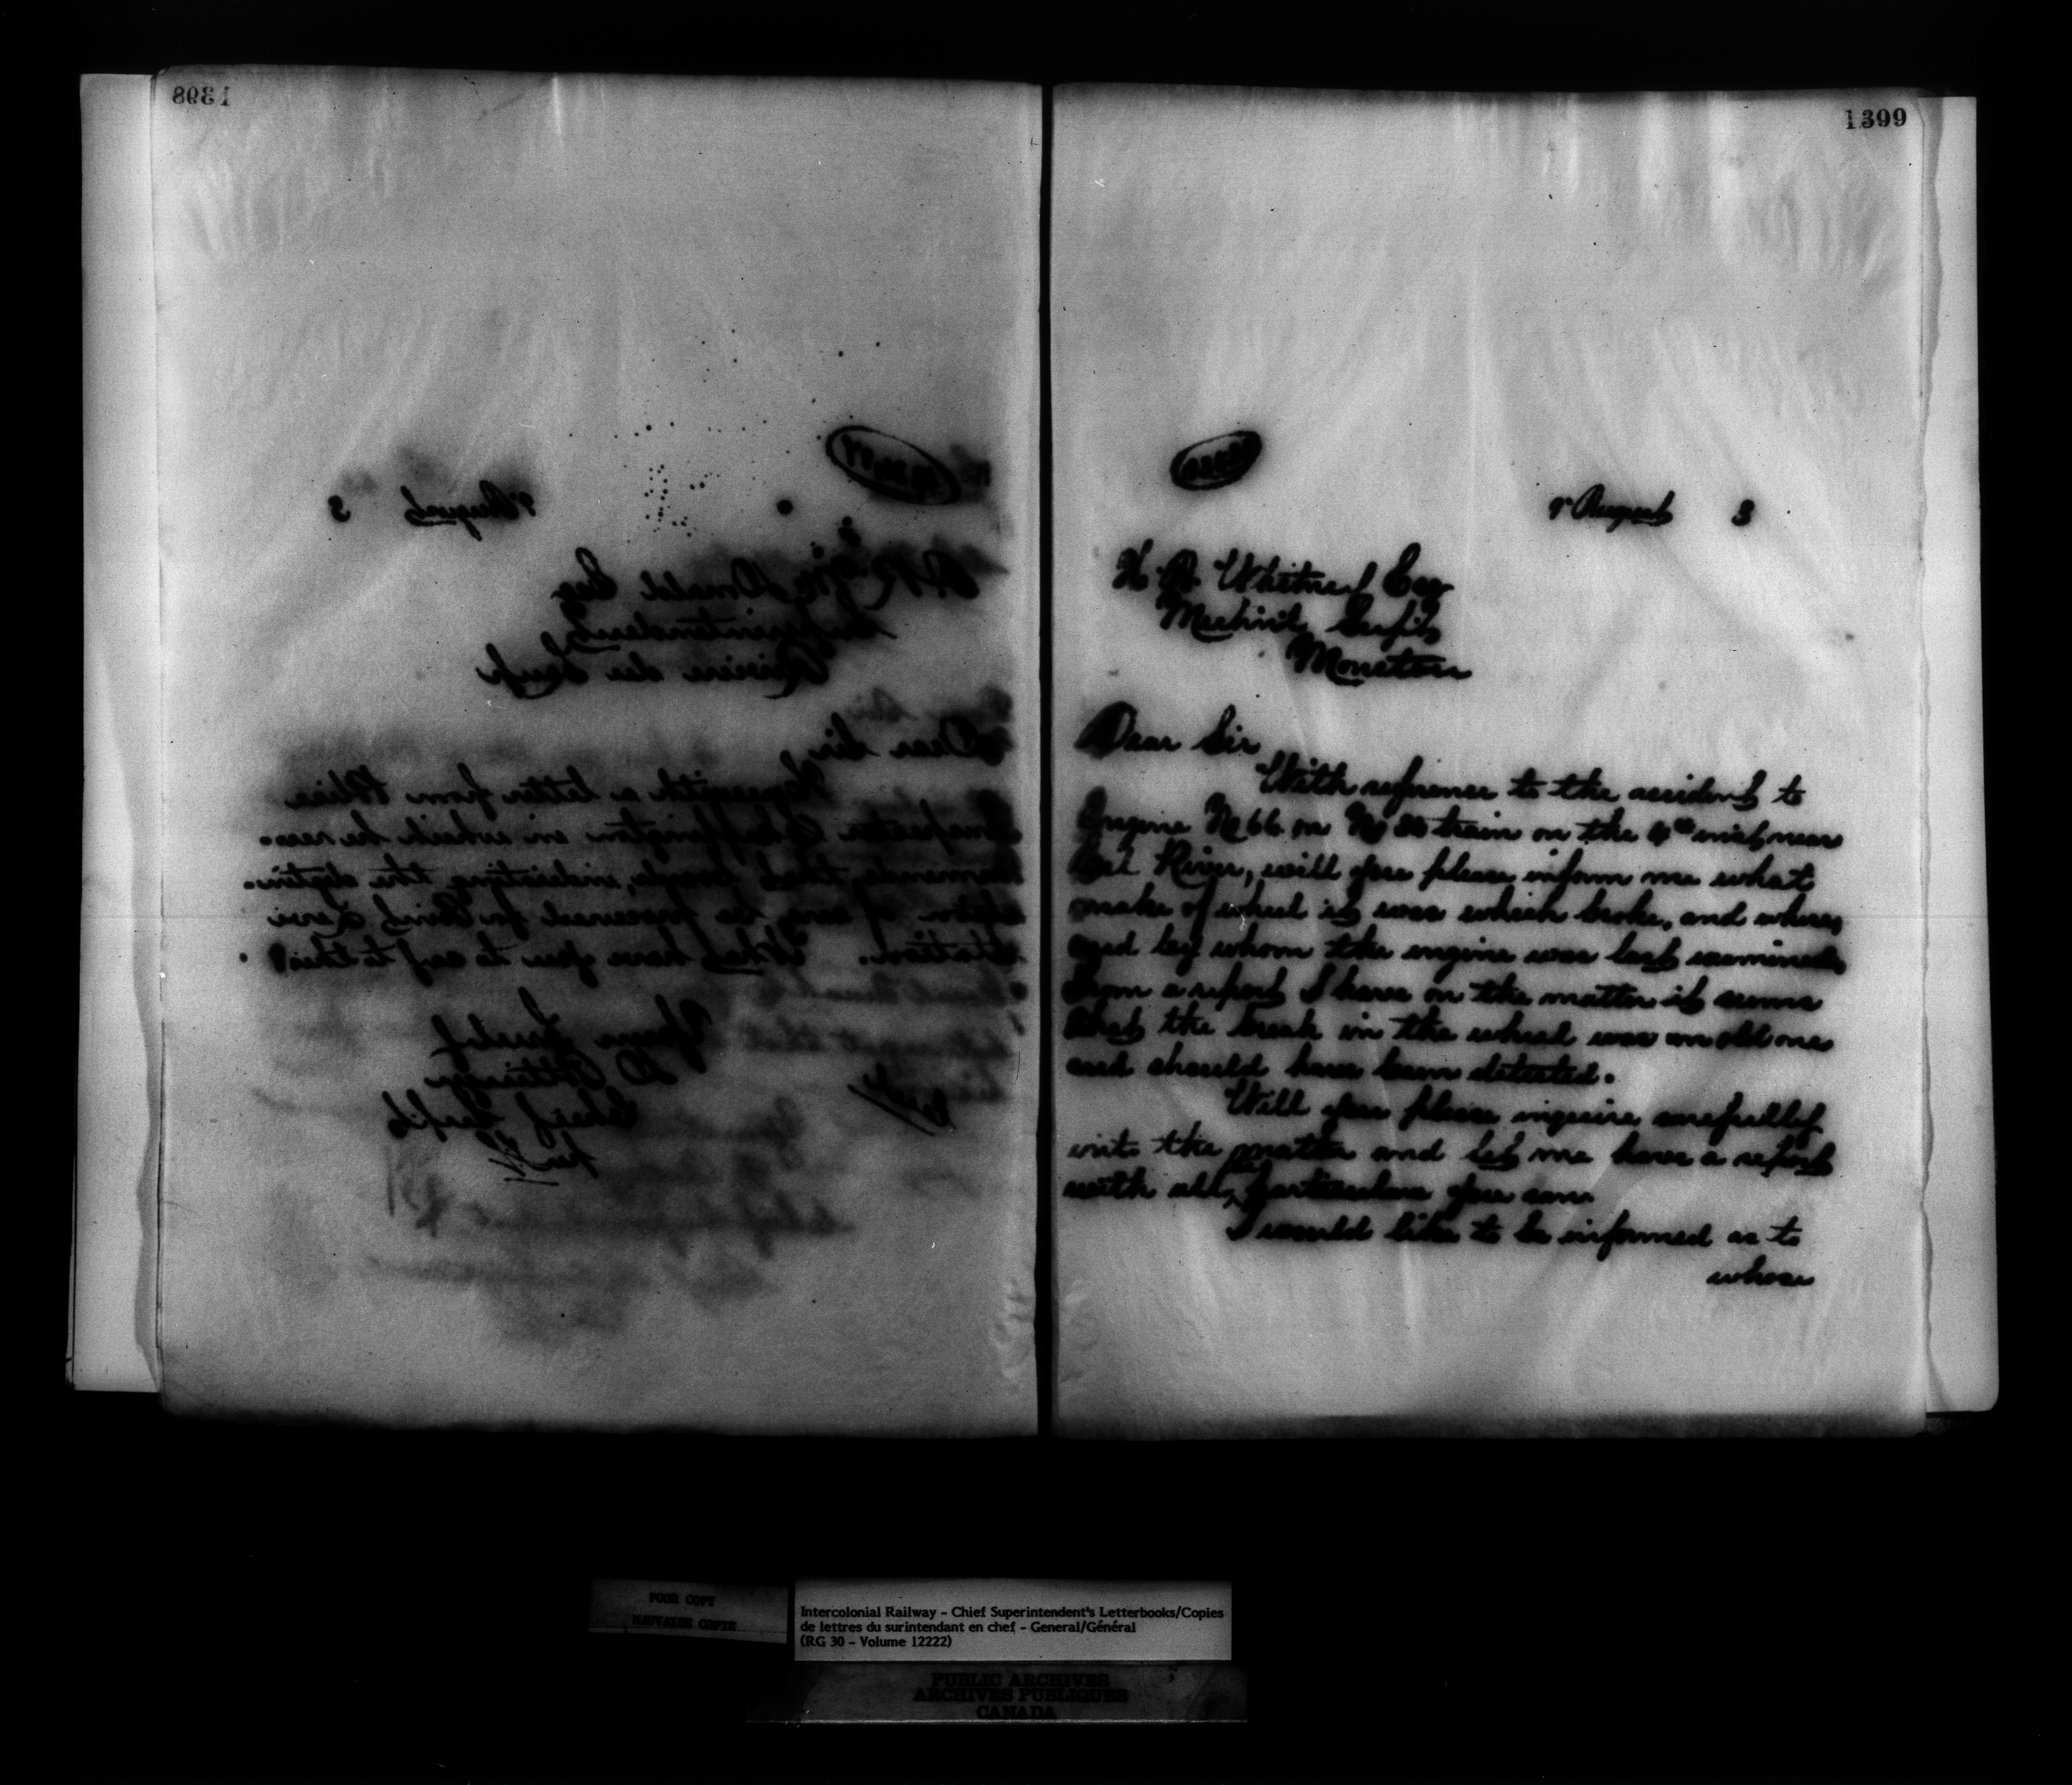 1398
9th August 3
A R McDonald Esq
Superintendent
Riviere du Loup
Dear Sir,
Herewith a letter from Police
Inspector Skeffington in which he recom-
mends that boards, indicating the
of cars, be procured for Point Levi
Station. What have you to say to this?
Yours Truly
D Pottinger
Chief Supt
1399
9th August 3
H. A. Whitney Esq
Mechl. Supt,
Moncton
Dear Sir
With reference to the accident to
Engine No 66 on No train on the inst, near
River, will you please inform me what
make of wheel it was which broke, and where,
and by whom the engine was last examined.
From a report I have on the matter it seems
that the break in the wheel was an old one
and should have been detected.
Will you please inquire carefully
into the matter and let me have a report
with all the particulars you can.
I would like to be informed as to
whose
POOR COPY
MAUVAISE COPIE
Intercolonial Railway - Chief Superintendent's Letterbooks/Copies
de lettres du surintendant en chef - General/Général
(RG 30 - Volume 12222)
PUBLIC ARCHIVES
ARCHIVES PUBLIQUES
CANADA